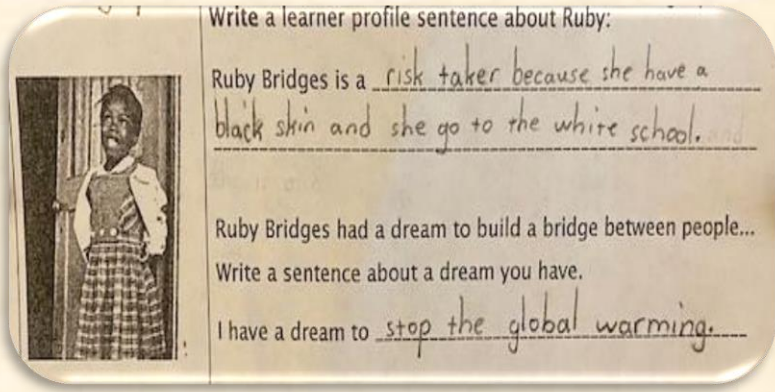 Write a learner profile sentence about Ruby:
Ruby Bridges is a risk taker because she have a
black skin and she go to the white school.
Ruby Bridges had a dream to build a bridge between people...
Write a sentence about a dream you have.
I have a dream to stop the global warming.